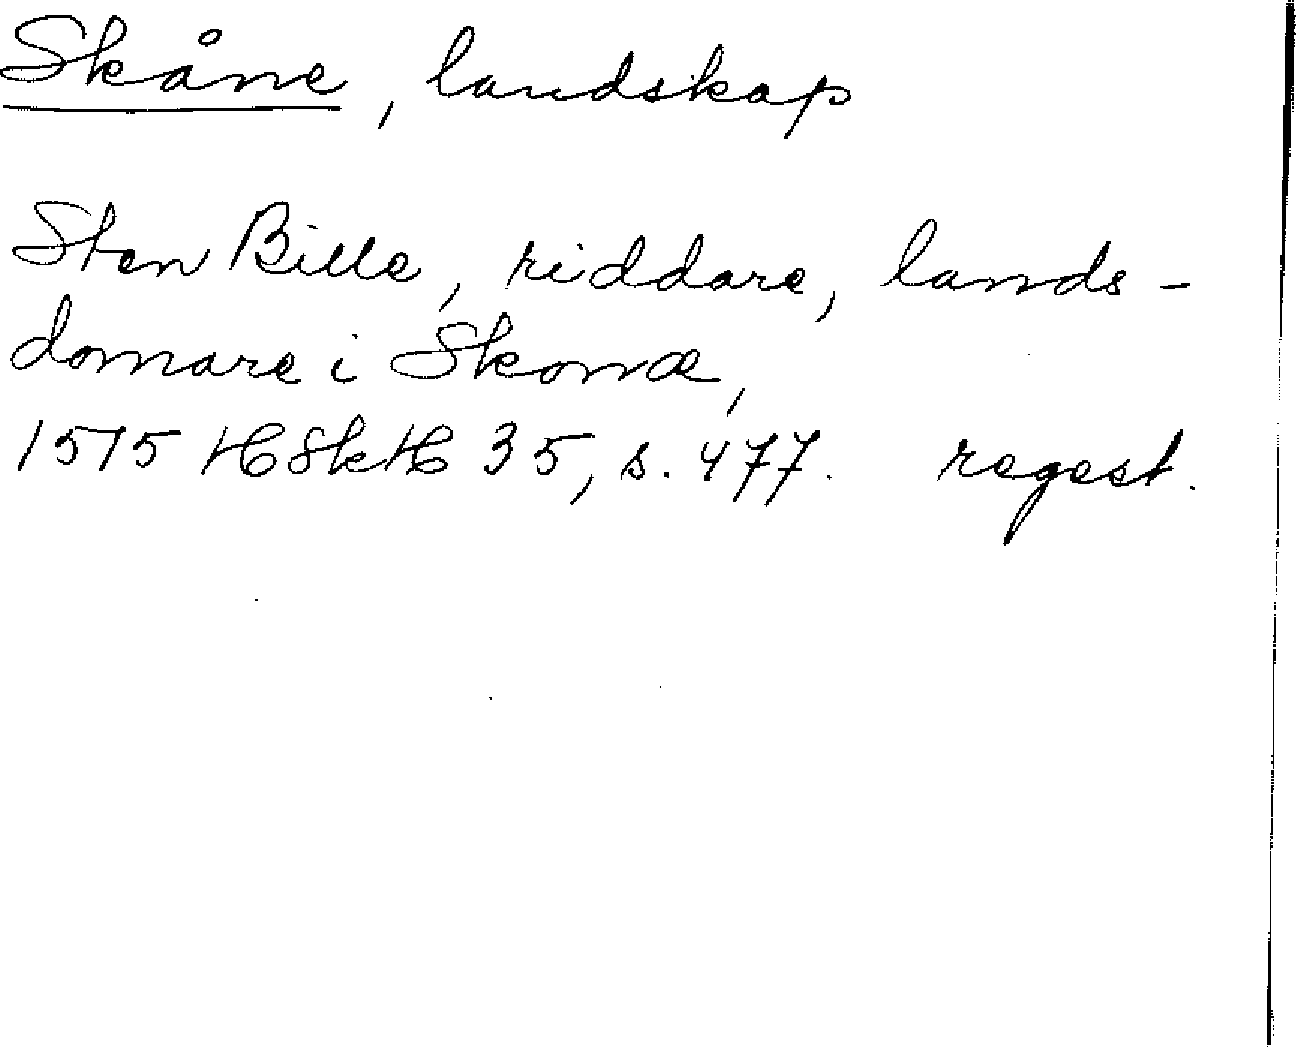 Skåne, landskap
Sten Bille, riddare, lands-
domare i Skonæ,
1515 HSkH 35, s. 477. regest.